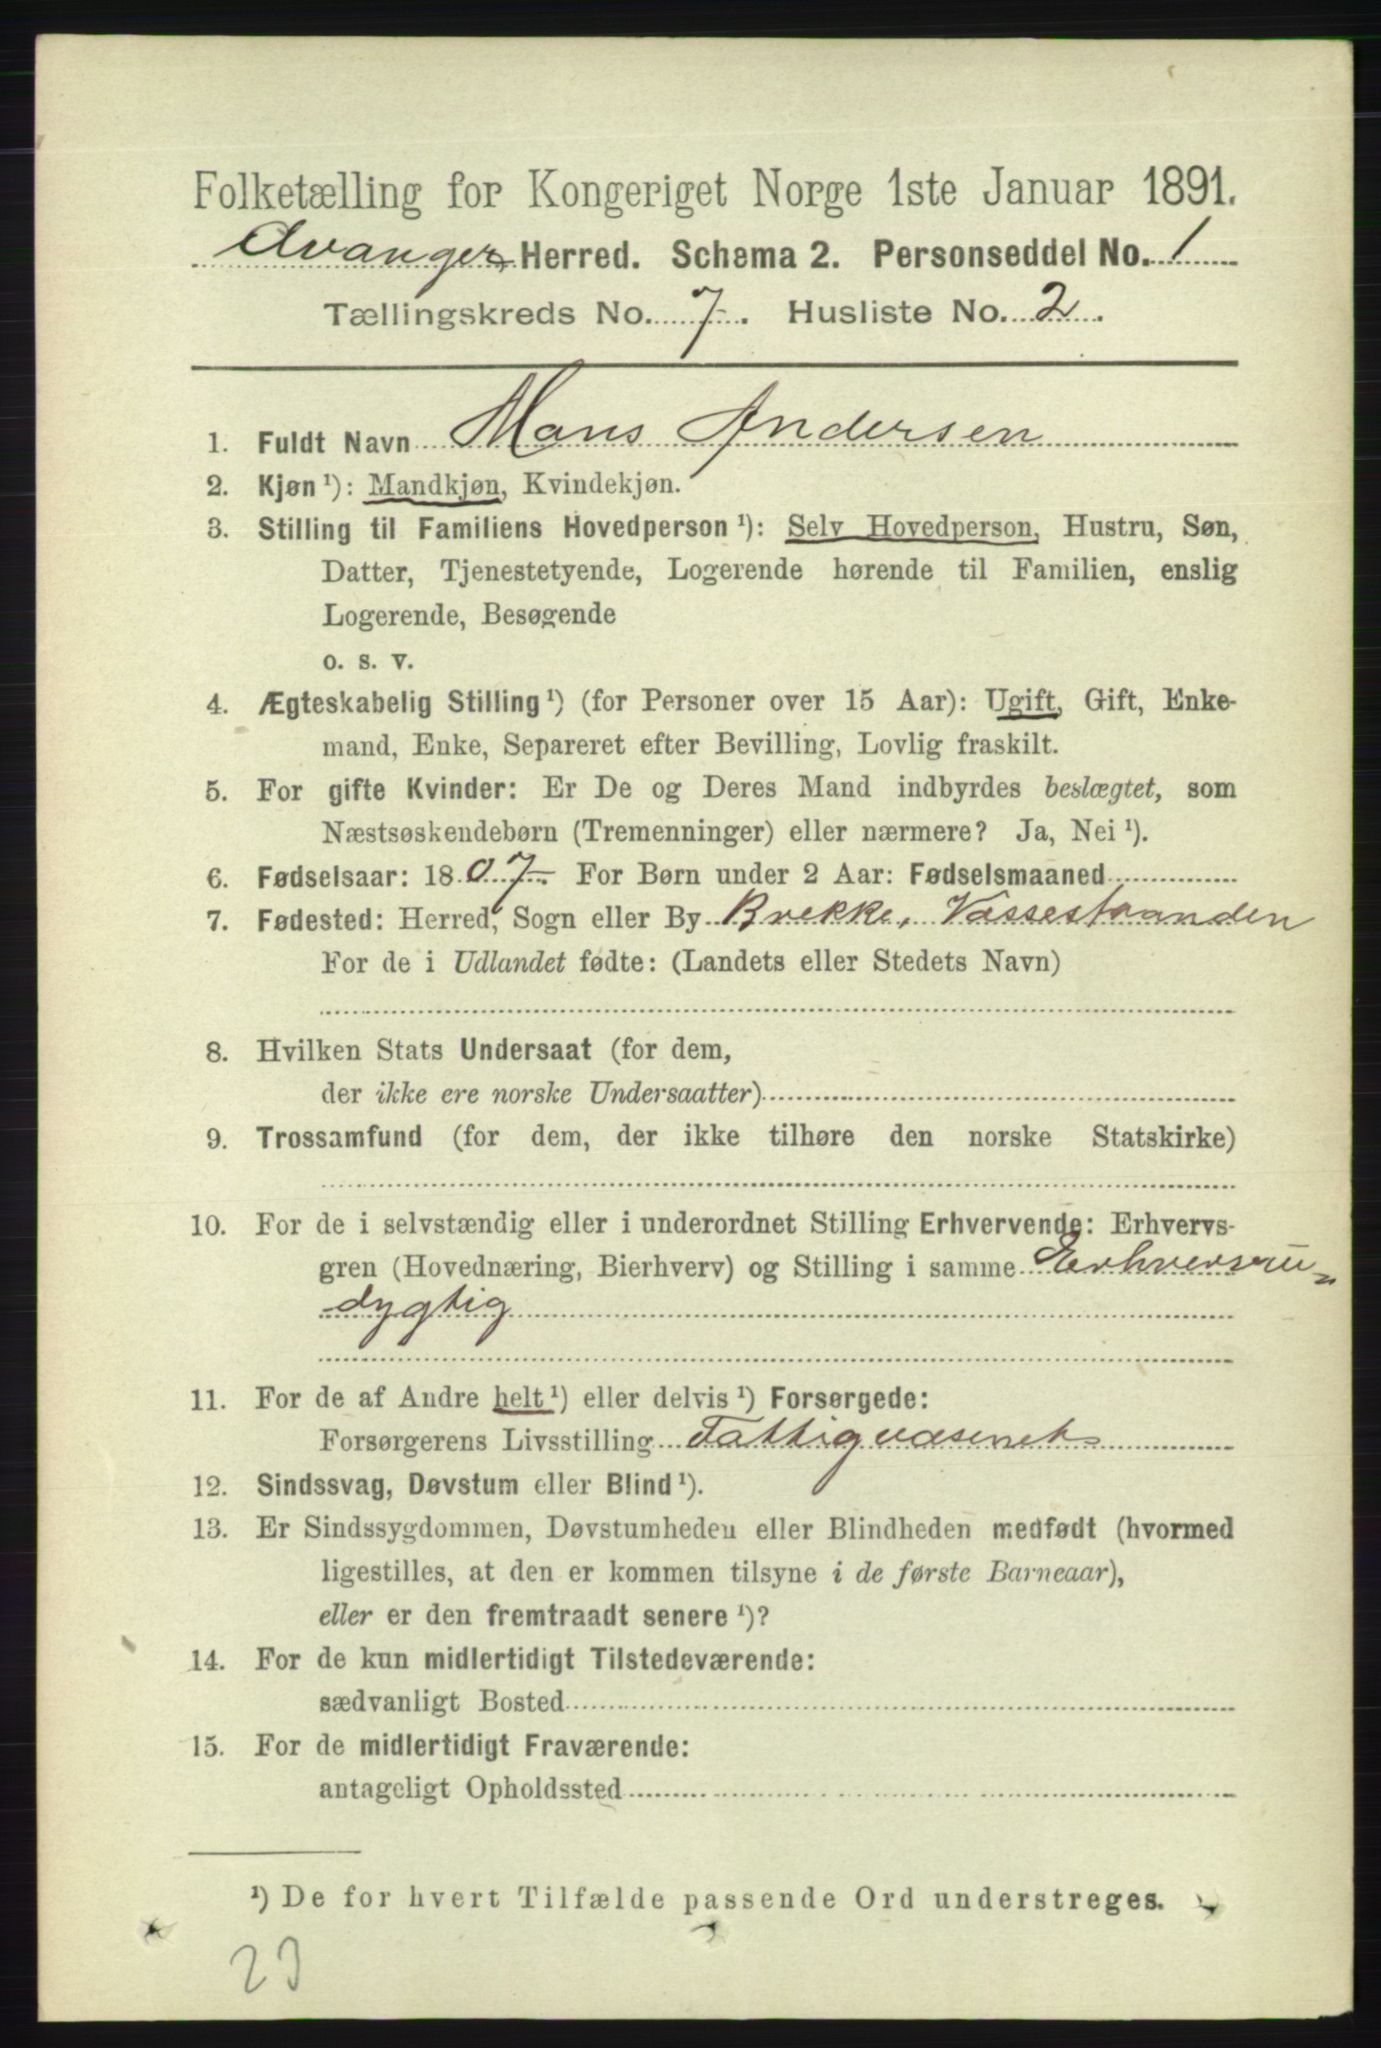 Folketælling for Kongeriget Norge 1ste Januar 1891.
Evanger Herred. Schema 2. Personseddel No. 1
Tællingskreds No. 7. Husliste No. 2.
1. Fuldt Navn Mons Andersen
2. Kjøn ¹): Mandkjøn, Kvindekjøn.
3. Stilling til Familiens Hovedperson ¹): Selv Hovedperson, Hustru, Søn,
Datter, Tjenestetyende, Logerende hørende til Familien, enslig
Logerende, Besøgende
o. s. v.
4. Ægteskabelig Stilling ¹) (for Personer over 15 Aar): Ugift, Gift, Enke-
mand, Enke, Separeret efter Bevilling, Lovlig fraskilt.
5. For gifte Kvinder: Er De og Deres Mand indbyrdes beslægtet, som
Næstsøskendebørn (Tremenninger) eller nærmere? Ja, Nei ¹).
6. Fødselsaar: 1807. For Børn under 2 Aar: Fødselsmaaned
7. Fødested: Herred, Sogn eller By Brekke, Vassestranden
For de i Udlandet fødte: (Landets eller Stedets Navn)
8. Hvilken Stats Undersaat (for dem,
der ikke ere norske Undersaatter)
9. Trossamfund (for dem, der ikke tilhøre den norske Statskirke)
10. For de i selvstændig eller i underordnet Stilling Erhvervende: Erhvervs-
gren (Hovednæring, Bierhverv) og Stilling i samme Erhversu-
dygtig
11. For de af Andre helt ¹) eller delvis ¹) Forsørgede:
Forsørgerens Livsstilling Fattigvæsenet
12. Sindssvag, Døvstum eller Blind ¹).
13. Er Sindssygdommen, Døvstumheden eller Blindheden medfødt (hvormed
ligestilles, at den er kommen tilsyne i de første Barneaar),
eller er den fremtraadt senere ¹)?
14. For de kun midlertidigt Tilstedeværende:
sædvanligt Bosted
15. For de midlertidigt Fraværende:
antageligt Opholdssted
¹) De for hvert Tilfælde passende Ord understreges.
23